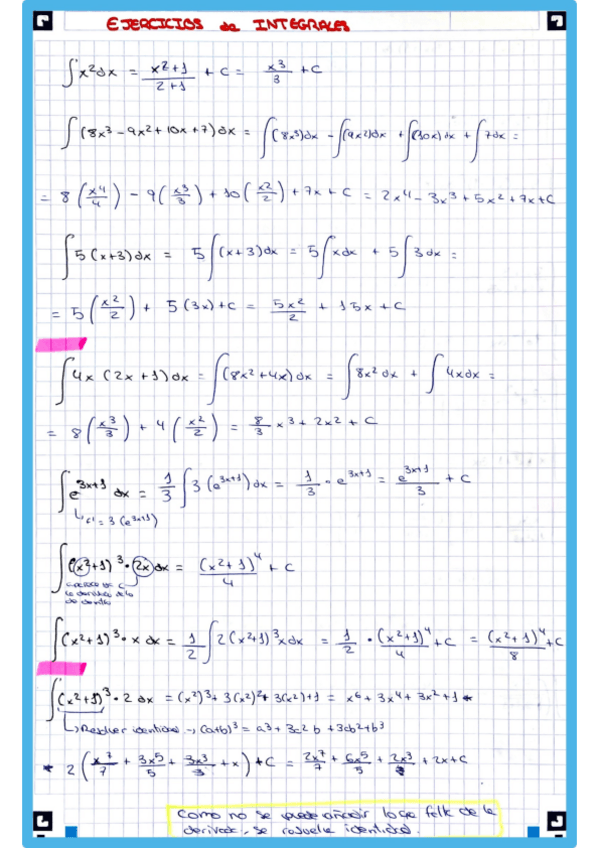 EJERCICIOS de INTEGRALES
∫x²dx = x²⁺¹/2+1 + C = x³/3 + C
∫(8x³ - 9x² + 10x + 7)dx = ∫(8x³)dx - ∫(9x²)dx + ∫(10x)dx + ∫7dx =
= 8(x⁴/4) - 9(x³/3) + 10(x²/2) + 7x + C = 2x⁴ - 3x³ + 5x² + 7x + C
∫5(x+3)dx = 5∫(x+3)dx = 5∫xdx + 5∫3dx =
= 5(x²/2) + 5(3x) + C = 5x²/2 + 15x + C
∫4x(2x+1)dx = ∫(8x²+4x)dx = ∫8x²dx + ∫4xdx =
= 8(x³/3) + 4(x²/2) = 8/3 x³ + 2x² + C
∫e³ˣ⁺¹ dx = 1/3 ∫3(e³ˣ⁺¹)dx = 1/3 · e³ˣ⁺¹ = e³ˣ⁺¹/3 + C
= 3(e³ˣ⁺¹)
∫(x²+1)³ · 2x dx = (x²+1)⁴/4 + C
la derivada de lo
de dentro
∫(x²+1)³ · x dx = 1/2 ∫2(x²+1)³xdx = 1/2 · (x²+1)⁴/4 + C = (x²+1)⁴/8 + C
∫(x²+1)³ · 2dx = (x²)³ + 3(x²)² + 3(x²) + 1 = x⁶ + 3x⁴ + 3x² + 1 *
↳ Resolver identidad → (a+b)³ = a³ + 3a²b + 3ab² + b³
* 2(x⁷/7 + 3x⁵/5 + 3x³/3 + x) + C = 2x⁷/7 + 6x⁵/5 + 2x³ + 2x + C
Como no se puede añadir lo que falta de la
derivada, se resuelve identidad.